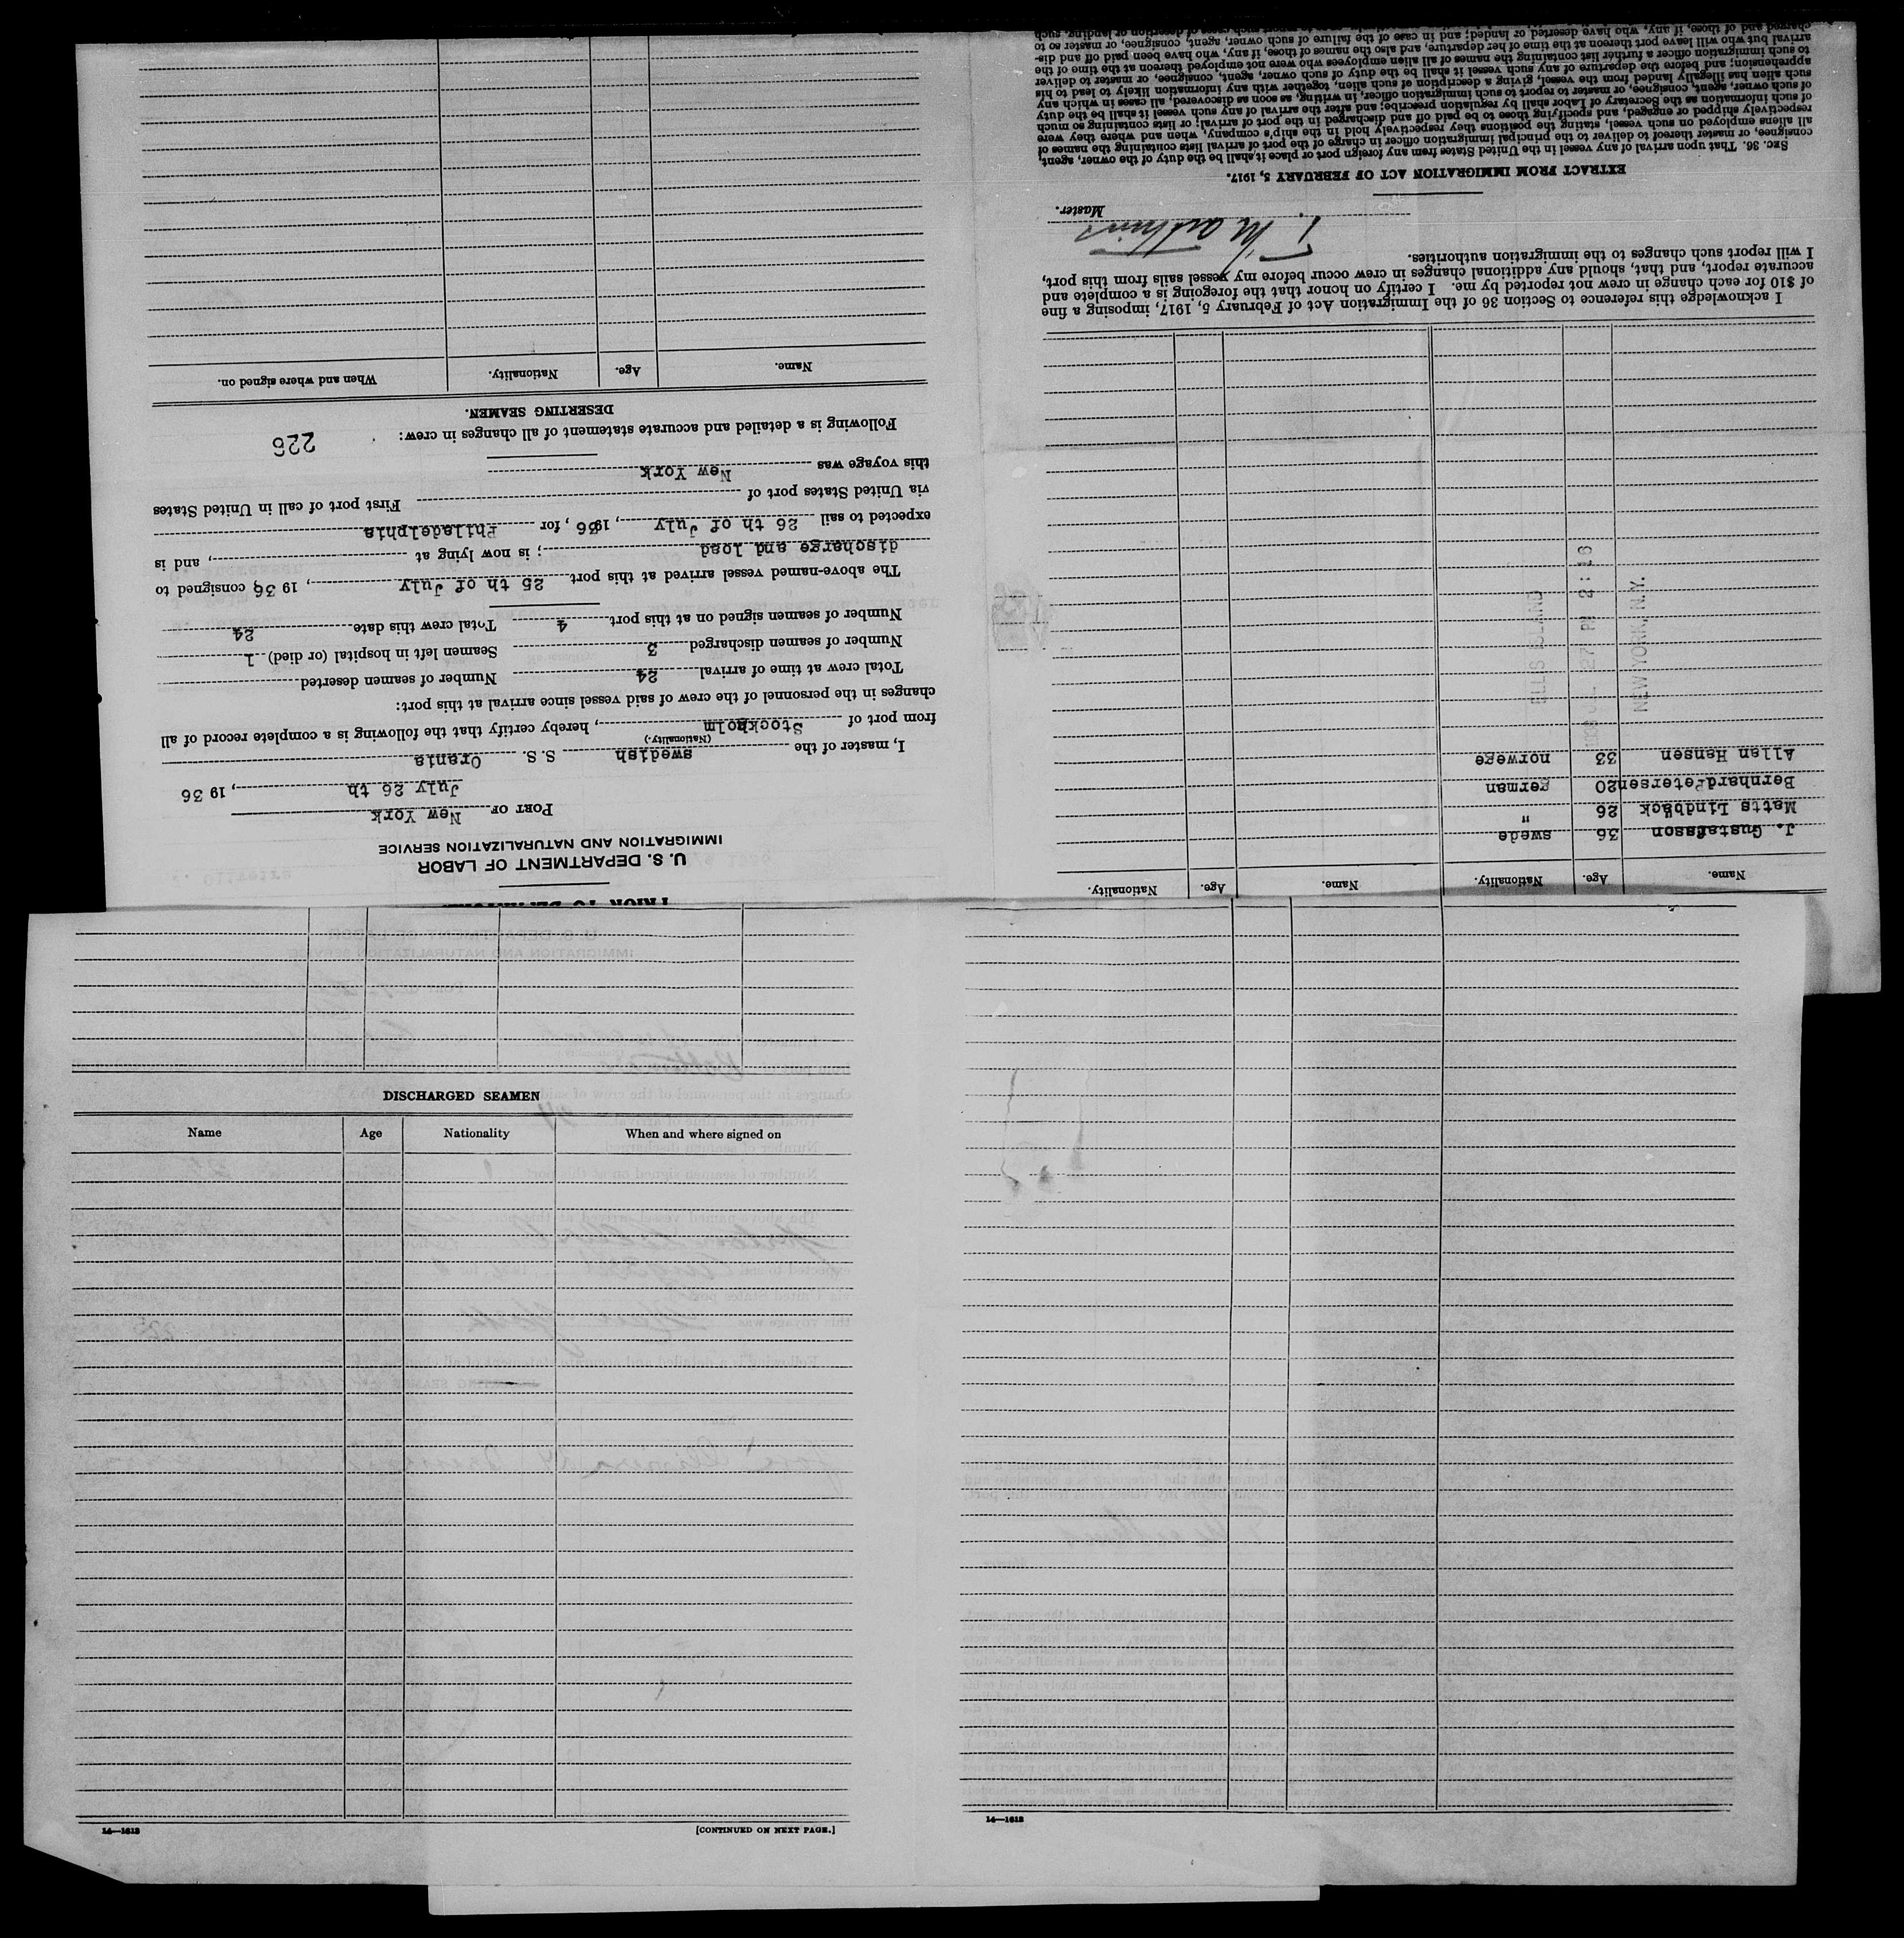 U. S. DEPARTMENT OF LABOR
IMMIGRATION AND NATURALIZATION SERVICE
PORT OF New York
July 26 th, 1936
I, master of the swedish S. S. Orania
(Nationality.)
from port of Stockholm, hereby certify that the following is a complete record of all
changes in the personnel of the crew of said vessel since arrival at this port:
Total crew at time of arrival 24 Number of seamen deserted
Number of seamen discharged 3 Seamen left in hospital (or died) 1
Number of seamen signed on at this port 4 Total crew this date 24
The above-named vessel arrived at this port 25 th of July, 1936 consigned to
discharge and load; is now lying at , and is
expected to sail 26 th of July, 1936, for Philadelphia
via United States port of First port of call in United States
this voyage was New York
Following is a detailed and accurate statement of all changes in crew:
226
DESERTING SEAMEN.
Name. Age. Nationality. When and where signed on.
Name. Age. Nationality. Name. Age. Nationality.
J. Gustafsson 36 swede
Matts Lindbäck 26 "
Bernhard Petersen 20 german
Allan Hansen 33 norwege
ELLIS ISLAND
27 PM 2:16
NEW YORK, N.Y.
I acknowledge this reference to Section 36 of the Immigration Act of February 5, 1917, imposing a fine
of $10 for each change in crew not reported by me. I certify on honor that the foregoing is a complete and
accurate report, and that, should any additional changes in crew occur before my vessel sails from this port,
I will report such changes to the immigration authorities.
Master.
EXTRACT FROM IMMIGRATION ACT OF FEBRUARY 5, 1917.
SEC. 36. That upon arrival of any vessel in the United States from any foreign port or place it shall be the duty of the owner, agent,
consignee, or master thereof to deliver to the principal immigration officer in charge of the port of arrival lists containing the names of
all aliens employed on such vessel, stating the positions they respectively hold in the ship's company, when and where they were
respectively shipped or engaged, and specifying those to be paid off and discharged in the port of arrival; or lists containing so much
of such information as the Secretary of Labor shall by regulation prescribe; and after the arrival of any such vessel it shall be the duty
of such owner, agent, consignee, or master to report to such immigration officer, in writing, as soon as discovered, all cases in which any
such alien has illegally landed from the vessel, giving a description of such alien, together with any information likely to lead to his
apprehension; and before the departure of any such vessel it shall be the duty of such owner, agent, consignee, or master to deliver
to such immigration officer a further list containing the names of all alien employees who were not employed thereon at the time of the
arrival but who will leave port thereon at the time of her departure, and also the names of those, if any, who have been paid off and dis-
charged and of those, if any, who have deserted or landed; and in case of the failure of such owner, agent, consignee, or master so to
DISCHARGED SEAMEN
Name Age Nationality When and where signed on
14—1613
[CONTINUED ON NEXT PAGE.]
14—1613